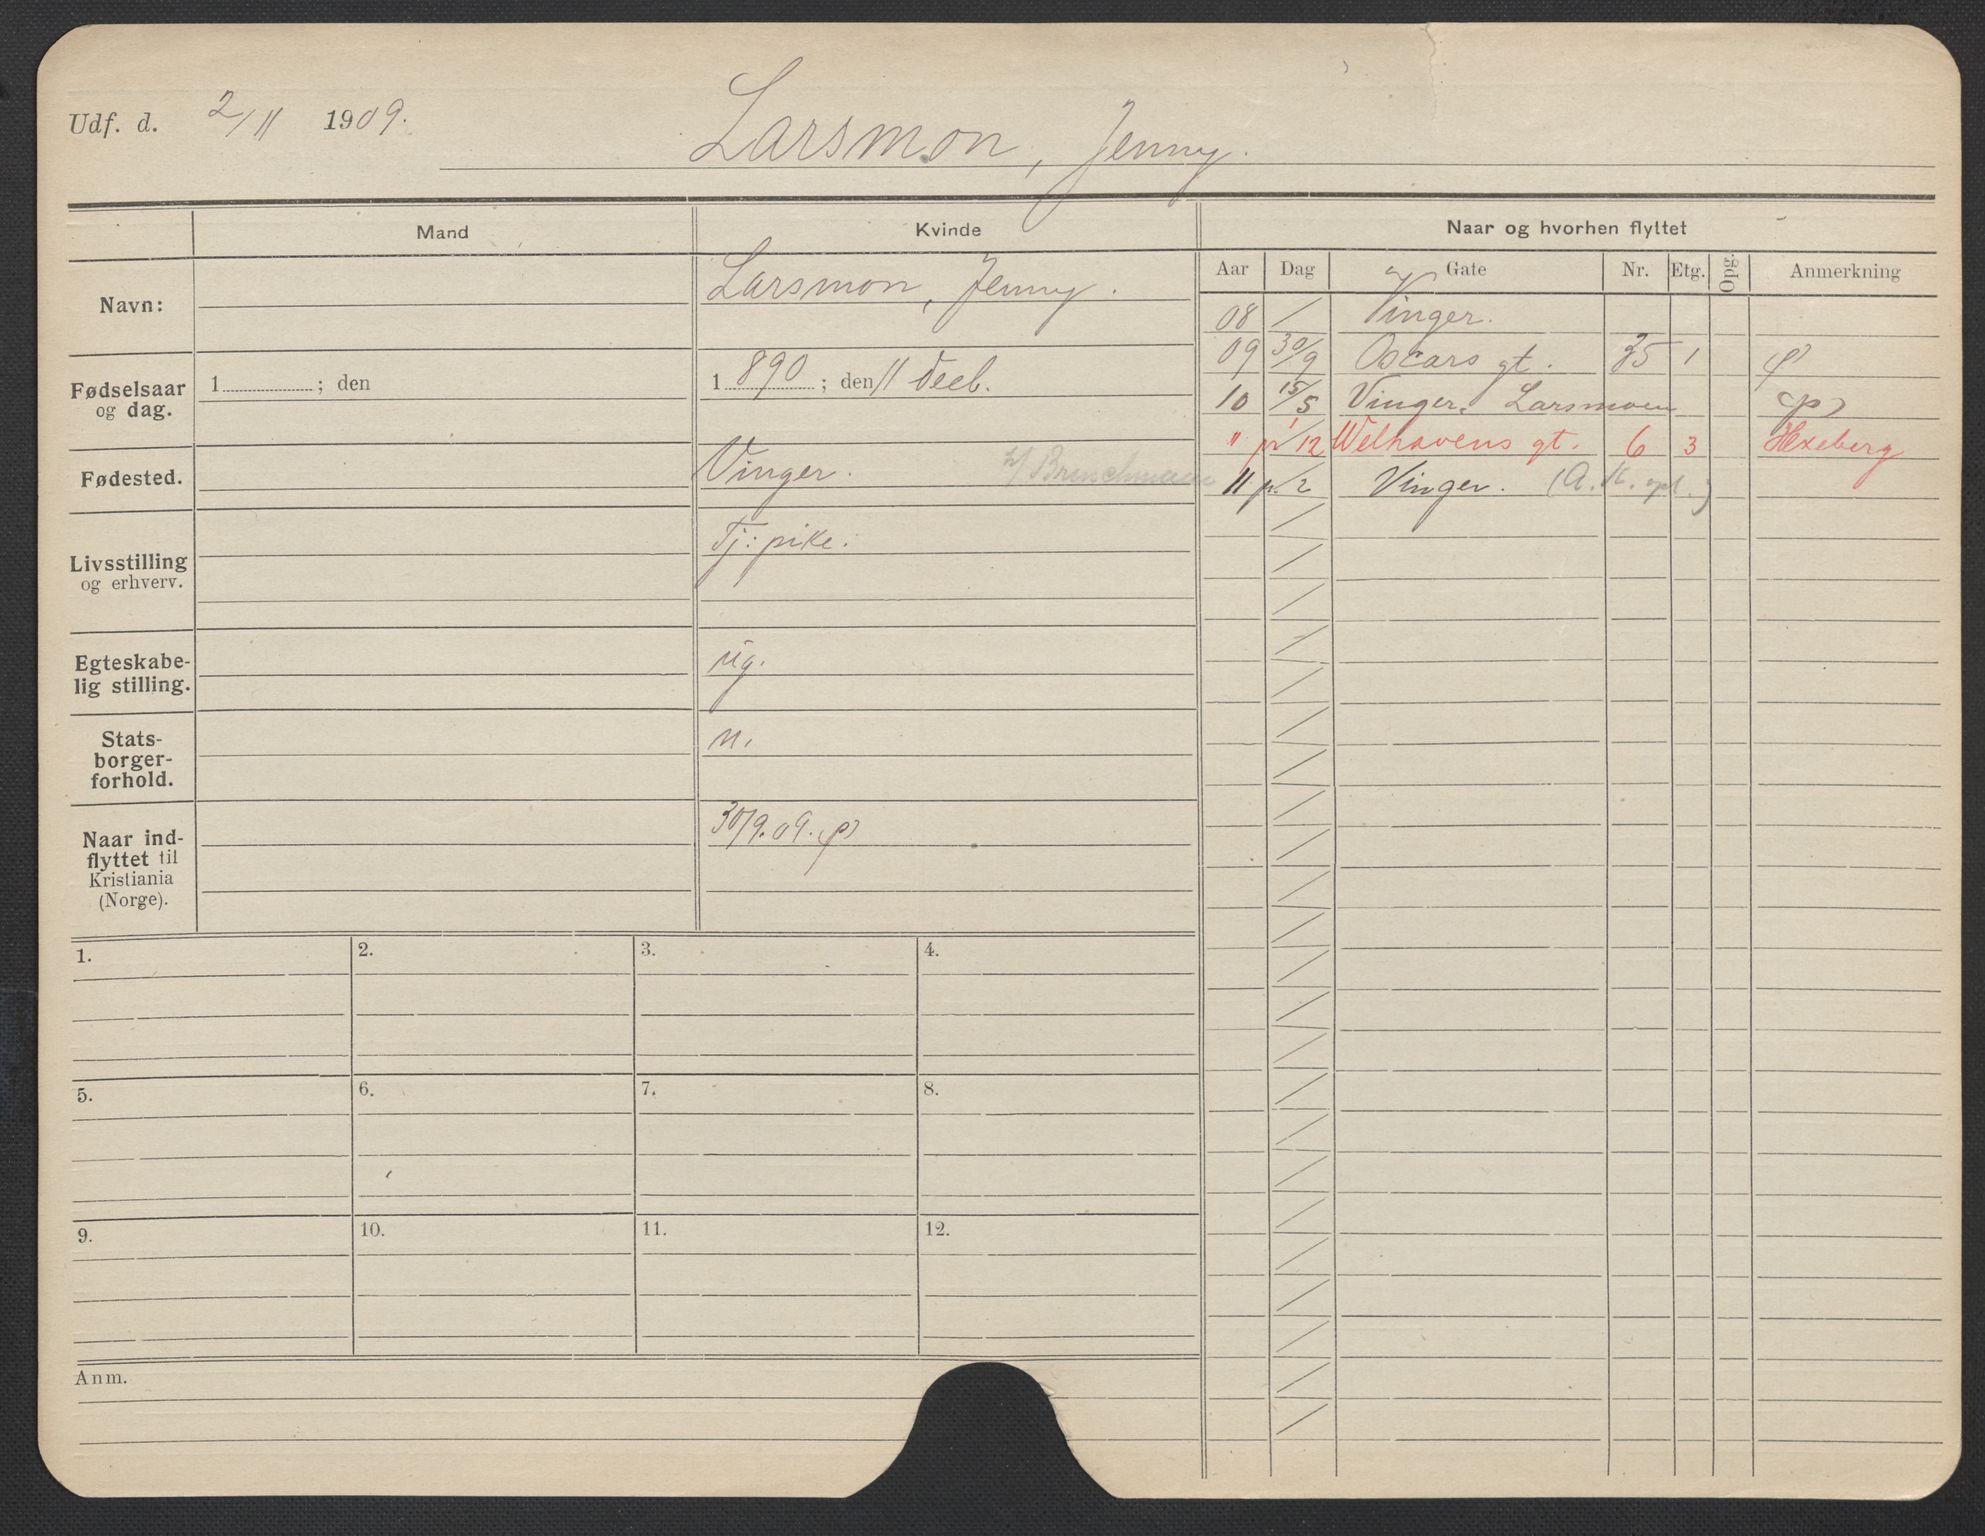 Udf. d. 2/11 1909.
Larsmon, Jenny.
Mand
Kvinde
Naar og hvorhen flyttet
Aar Dag Gate Nr. Etg. Opg. Anmerkning
Navn:
Larsmon, Jenny.
Fødselsaar
og dag.
1 ; den
1 890 ; den 11 Decb.
Fødested.
Vinger.
Livsstilling
og erhverv.
Tj: pike.
Egteskabe-
lig stilling.
ug.
Stats-
borger-
forhold.
n.
Naar ind-
flyttet til
Kristiania
(Norge).
30/9.09.
08 / Vinger.
09 30/9 Oscars gt. 35 1
10 15/5 Vinger, Larsmoen
" 1/12 Welhavens gt. 6 3 Hexeberg
11 p. 2 Vinger. (A. K. opl.)
1. 2. 3. 4.
5. 6. 7. 8.
9. 10. 11. 12.
Anm.